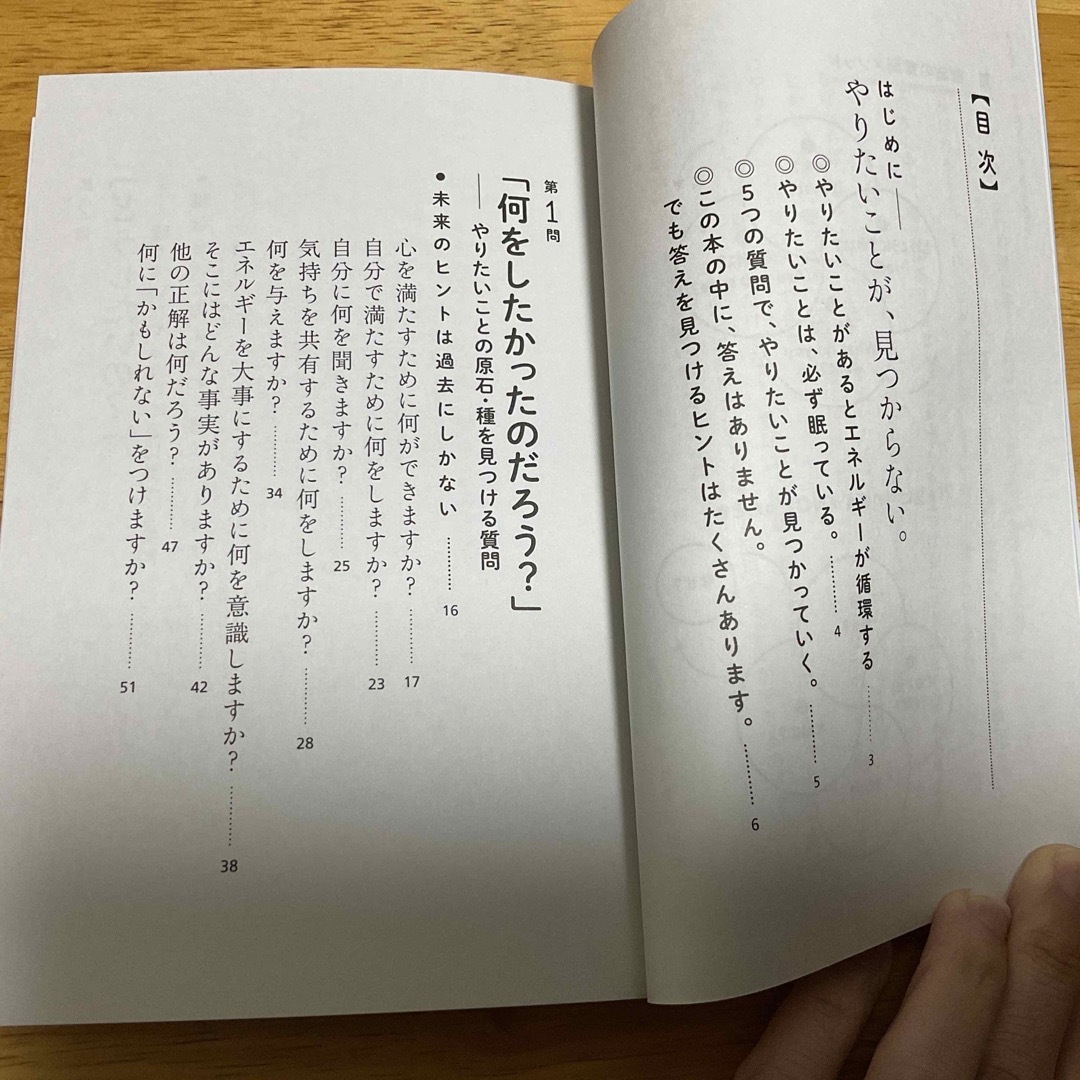 【目次】
はじめに――
やりたいことが、見つからない。
◎やりたいことがあるとエネルギーが循環する ………… 3
◎やりたいことは、必ず眠っている。 ………… 4
◎5つの質問で、やりたいことが見つかっていく。 ………… 5
◎この本の中に、答えはありません。
でも答えを見つけるヒントはたくさんあります。 ………… 6
第1問
「何をしたかったのだろう?」
――やりたいことの原石・種を見つける質問
●未来のヒントは過去にしかない ………… 16
心を満たすために何ができますか? ………… 17
自分で満たすために何をしますか? ………… 23
自分に何を聞きますか? ………… 25
気持ちを共有するために何をしますか? ………… 28
何を与えますか? ………… 34
エネルギーを大事にするために何を意識しますか? ………… 38
そこにはどんな事実がありますか? ………… 42
他の正解は何だろう? ………… 47
何に「かもしれない」をつけますか? ………… 51